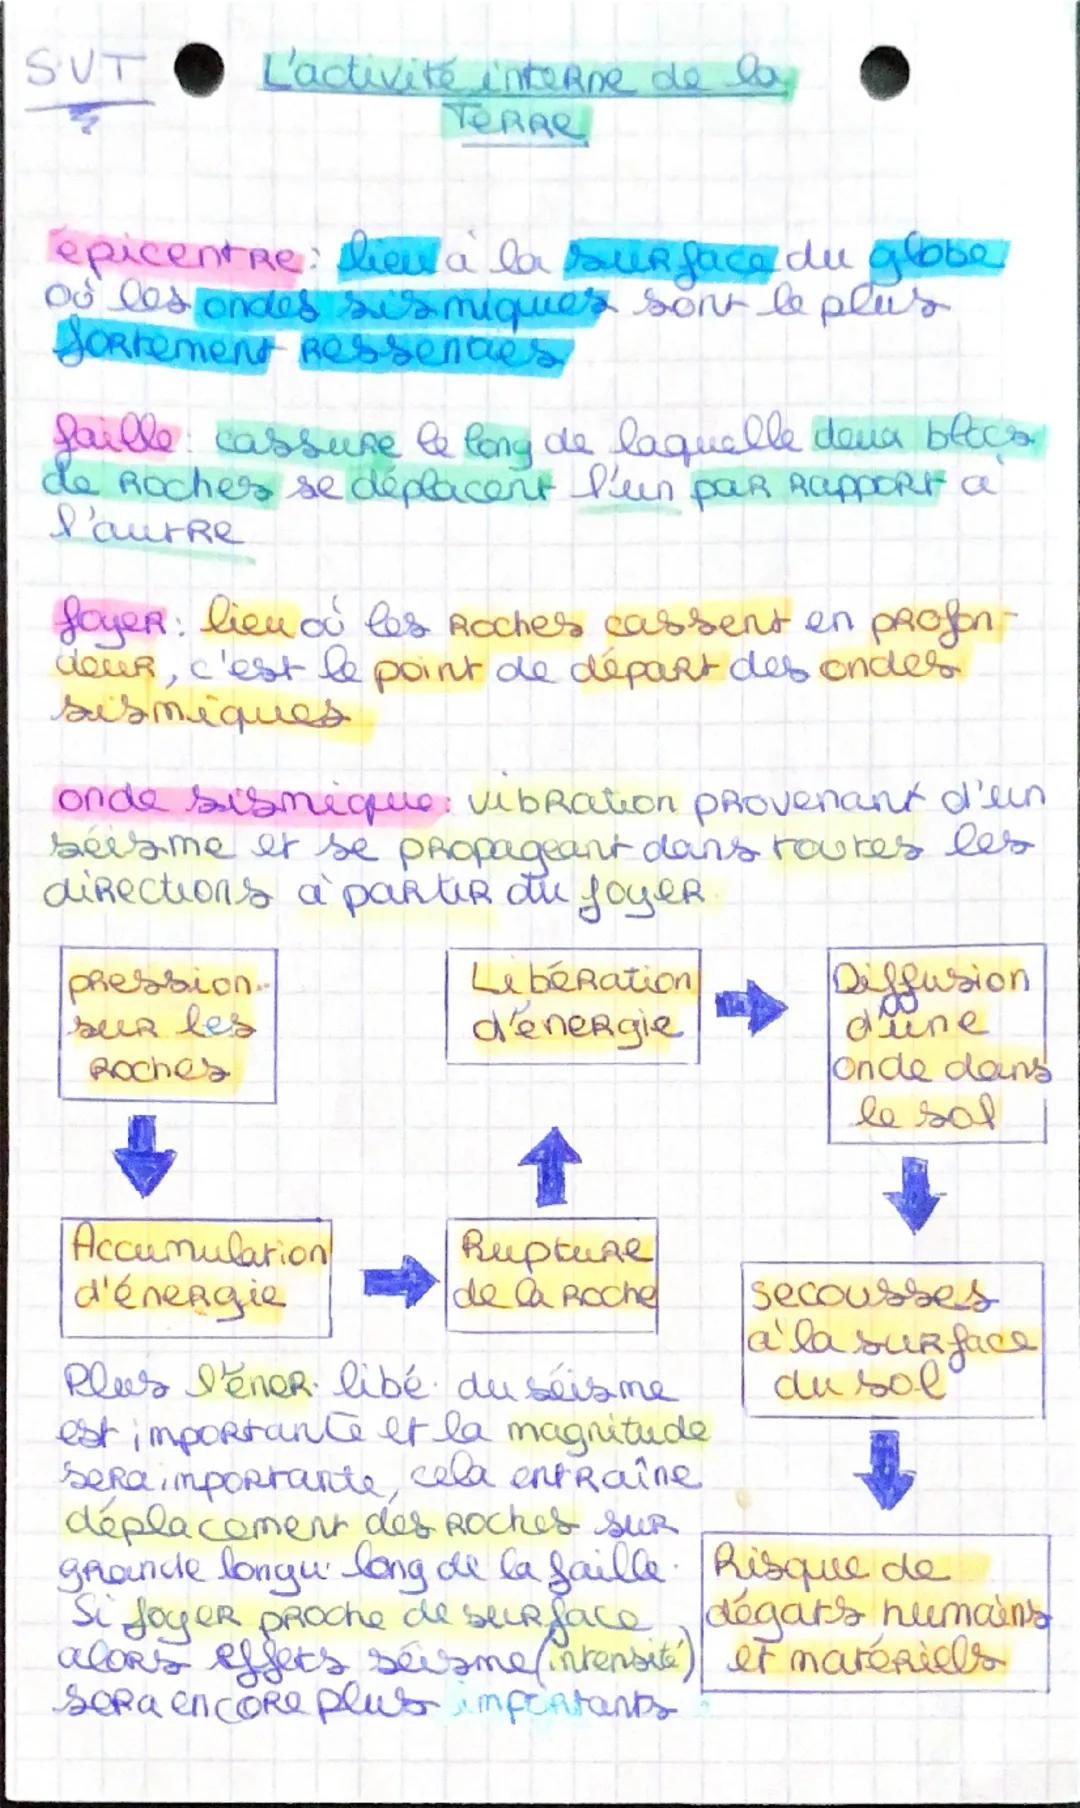 SVT
L'activité interne de la
Terre
épicentre: lieu à la surface du globe
où les ondes sismiques sont le plus
fortement ressenties
faille: cassure le long de laquelle deux blocs
de roches se déplacent l'un par rapport à
l'autre
foyer: lieu où les roches cassent en profon-
deur, c'est le point de départ des ondes
sismiques
onde sismique: vibration provenant d'un
séisme et se propageant dans toutes les
directions à partir du foyer.
pression
sur les
roches
Accumulation
d'énergie
Rupture
de la roche
Libération
d'énergie
Diffusion
d'une
onde dans
le sol
secousses
à la surface
du sol
Risque de
dégats humains
et matériels
Plus l'éner. libé. du séisme
est importante et la magnitude
sera importante, cela entraîne
déplacement des roches sur
grande longu. long de la faille.
Si foyer proche de surface
alors effets séisme (intensité)
sera encore plus importants